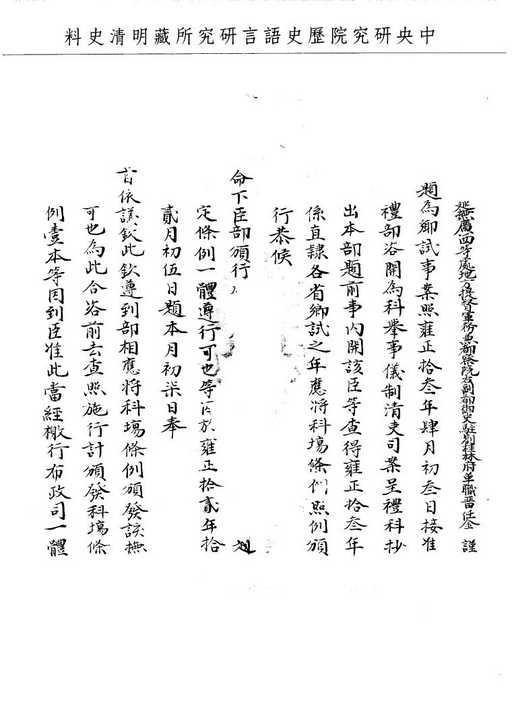 中央研究院歷史語言研究所藏明清史料
巡撫廣西等處地方提督軍務兼都察院右副都御史駐劄桂林府革職留任金 謹
題為鄉試事案照雍正拾叁年肆月初叁日接准
禮部咨開為科舉事儀制清吏司案呈禮科抄
出本部題前事內開該臣等查得雍正拾叁年
係直隸各省鄉試之年應將科塲條例照例頒
行恭候
命下臣部頒行 
定條例一體遵行可也等因於雍正拾貳年拾
貳月初伍日題本月初柒日奉
旨依議欽此欽遵到部相應將科塲條例頒發該撫
可也為此合咨前去查照施行計頒發科塲條
例壹本等因到臣准此當經檄行布政司一體